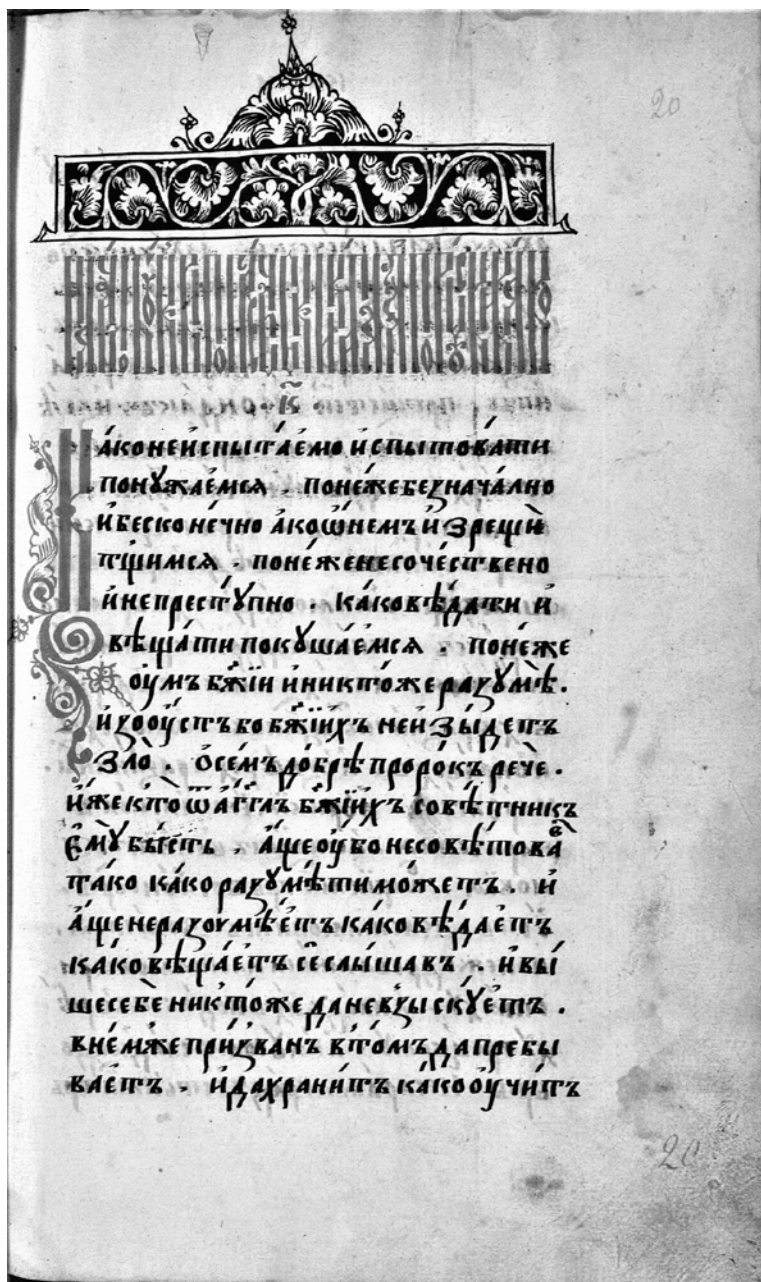 20
к҃
Како неиспытаемо испытовати
понꙋжаемся . понеже безначално
и бесконечно ако ѡ немъ изрещи
тщимся . понеже несочествено
и непрестꙋпно . како вѣдати и
вѣщати покꙋшаемся . понеже
оумъ бж҃іи иникто же разꙋмѣ .
изооустъ бо бж҃іихъ неизыдетъ
зло . Осемъ добрѣ пророкъ рече .
иже кто ѿ агг҃лъ бж҃іихъ совѣтникъ
емꙋ бысть . аще оубо несовѣтова
тако како разꙋмѣти можетъ . и
аще неразоумѣетъ како вѣдаетъ
како вѣщаетъ се слышавъ . и вы
ше себе никто же да невзыскꙋетъ .
внем же призванъ втомъ да пребы
ваетъ . и да хранитъ како оучитъ
20